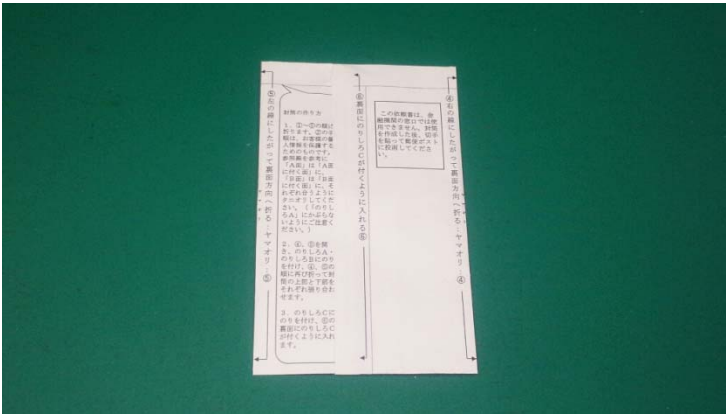 ⑤左の線にしたがって裏面方向へ折る…ヤマオリ…⑤
封筒の作り方
1．①～⑤の線に
折ります。②の手
順は、お客様の個
人情報を保護する
ためのものです。
参照裏を参考に
「A面」は「A面
に付く面」に、
「B面」は「B面
に付く面」に、そ
れぞれ合うように
タニオリしてくだ
さい。（「のりし
ろA」にかぶらな
いようにご注意く
ださい。）
2．④、⑤を開
き、のりしろA・
のりしろBにのり
を付け、④、⑤の
線に再び折って封
筒の上部と下部を
それぞれ張り合わ
せます。
3．のりしろCに
のりを付け、⑥の
裏面にのりしろC
が付くように入れ
ます。
⑥裏面にのりしろCが付くように入れる⑥
この依頼書は、金
融機関の窓口では使
用できません。封筒
を作成した後、切手
を貼って郵便ポスト
に投函してくださ
い。
④右の線にしたがって裏面方向へ折る…ヤマオリ…④